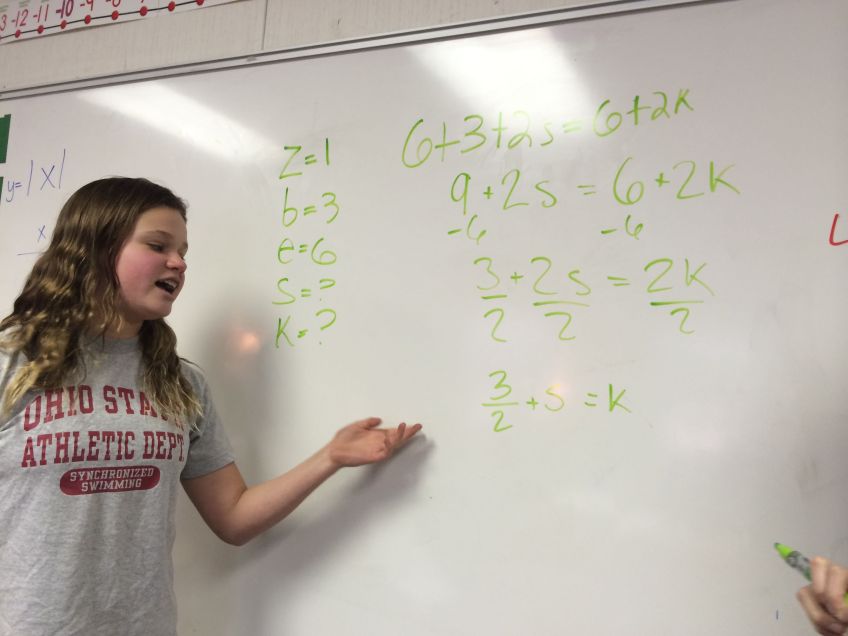 -12 -11 -10 -9
y=|x|
x
z=1
b=3
e=6
s=?
k=?
6+3+2s=6+2k
9+2s=6+2k
-6 -6
3/2+2s/2=2k/2
3/2+s=k
OHIO STATE
ATHLETIC DEPT
SYNCHRONIZED
SWIMMING